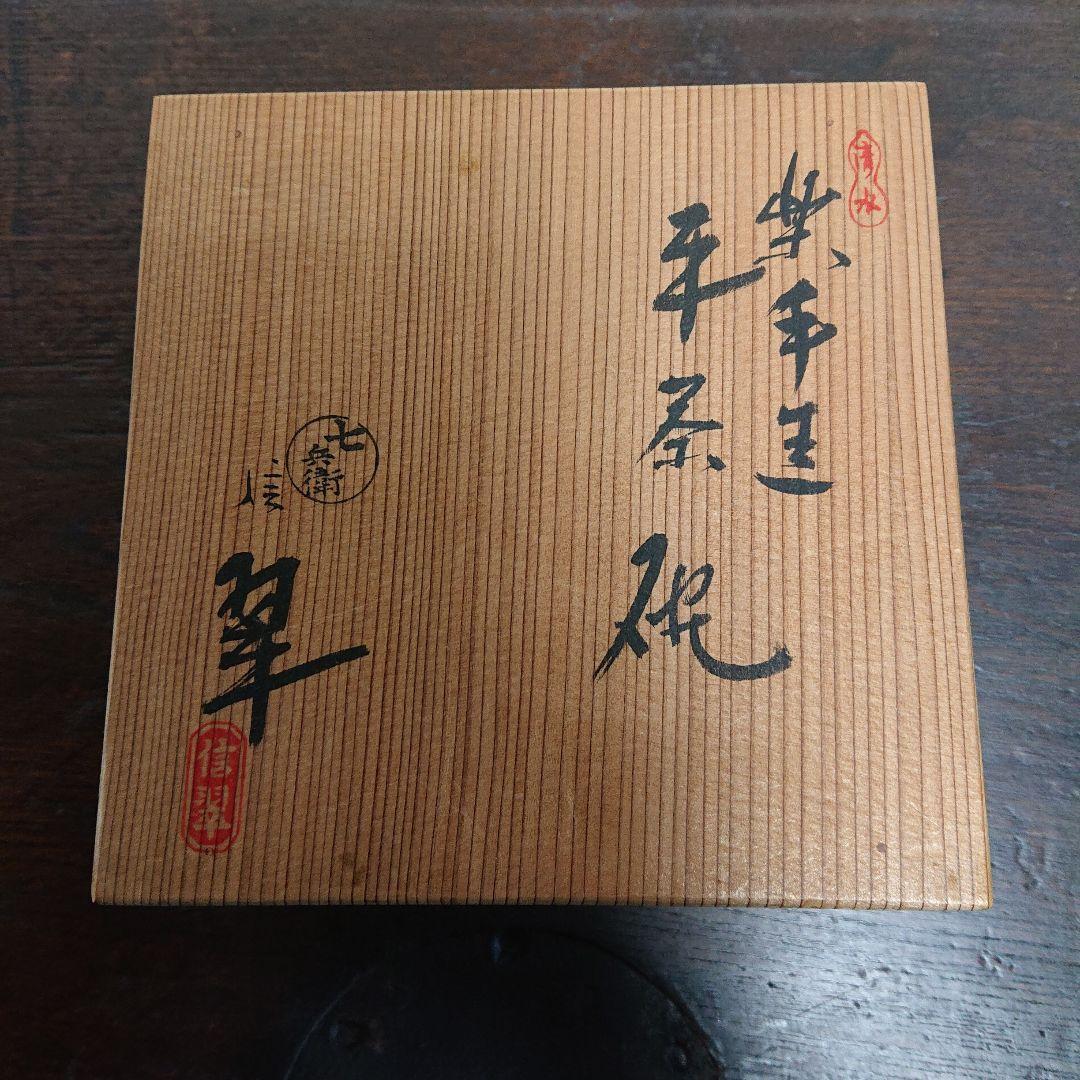 清水
楽手造
平茶碗
七兵衛
信翠
信翠